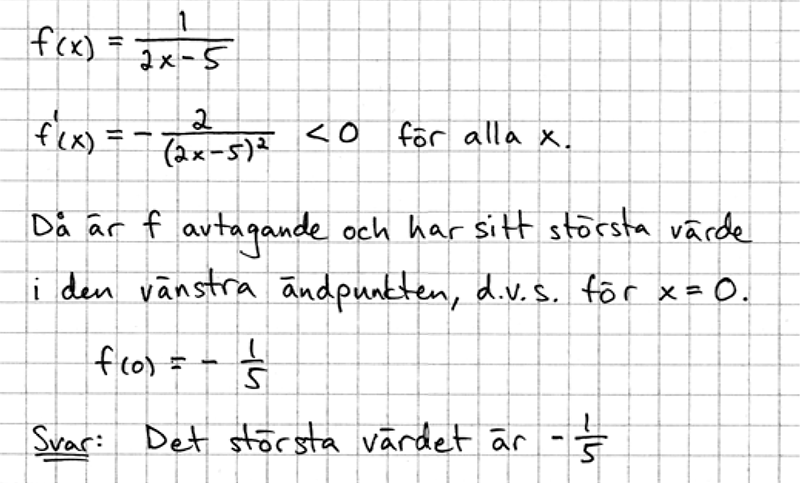 f(x) = 1/(2x-5)
f'(x) = - 2/(2x-5)² < 0 för alla x.
Då är f avtagande och har sitt största värde
i den vänstra ändpunkten, d.v.s. för x = 0.
f(0) = - 1/5
Svar: Det största värdet är - 1/5